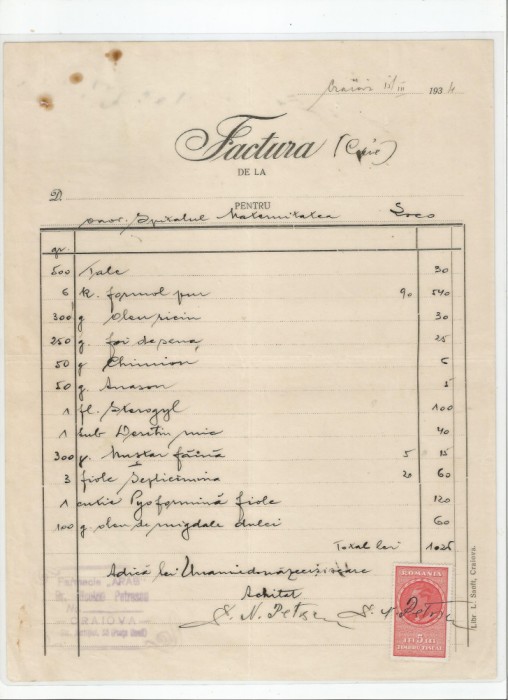 Craiova 15/III 1934
Factura (Copie)
DE LA
D.
PENTRU
onor. Spitalul Maternitatea Loco
gr.
500 Talc 30
6 k. formol pur 90 540
300 g. Oleu ricin 30
250 g. foi de sena 25
50 g. Chimion 5
50 g. Anason 5
1 fl. Sterogyl 100
1 tub Desitin mic 40
300 g. Mustar făină 5 15
3 fiole Septicimina 20 60
1 cutie Pyoformină fiole 120
100 g. oleu de migdale dulci 60
Total lei 1025
Adică lei
Achitat
N. Petrescu
Farmacia
CRAIOVA
ROMANIA
5 LEI 5 LEI
TIMBRU FISCAL
Libr. L. Sanft, Craiova.